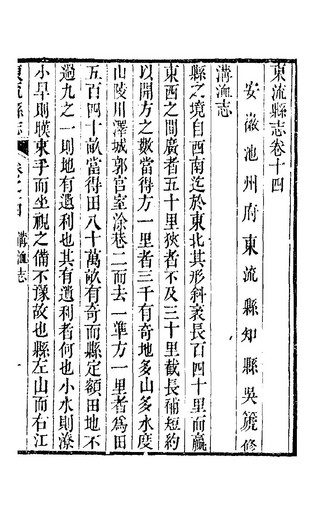 東流縣志卷十四
安徽池州府東流縣知縣吳箎修
溝洫志
縣之境自西南迄於東北其形斜袤長百四十里而贏
東西之間廣者五十里狹者不及三十里截長補短約
以開方之數當得方一里者三千有奇地多山多水度
山陵川澤城郭宮室涂巷二而去一準方一里者為田
五百四十畝當得田八十萬畝有奇而縣定額田地不
過九之一則地有遺利也其有遺利者何也小水則潦
小旱則暵束手而坐視之備不豫故也縣左山而右江
東流縣志
卷之十四
溝洫志
一